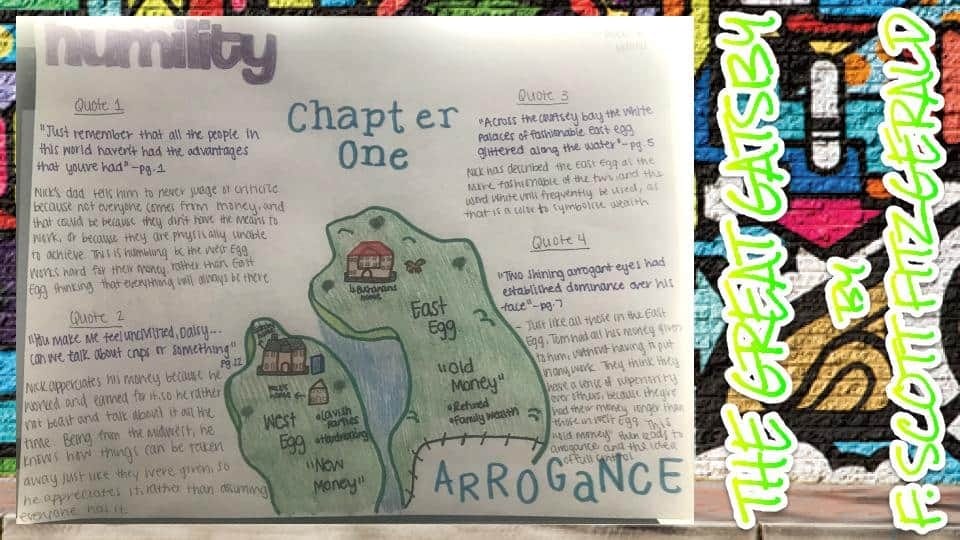 humility
Quote 1
"Just remember that all the people in
this world haven't had the advantages
that youve had" -pg.1
Nick's dad tells him to never judge or criticize
because not everyone comes from money, and
that could be because they dont have the means to
work, or because they are physically unable
to achieve. This is humbling be the West Egg
works hard for their money, rather than East
Egg thinking that everything will always be there
Quote 2
"You make me feel uncivilized, Daisy...
can we talk about crops or something"
pg.12
Nick appreciates his money because he
worked and earned for it, so he rather
not boast and talk about it all the
time. Being from the midwest, he
knows how things can be taken
away just like they were given, so
he appreciates it, rather than assuming
everyone has it.
Chapter
One
Quote 3
"Across the courtsey bay the white
palaces of fashionable east egg
glittered along the water" -pg.5
Nick has described the East Egg as the
more fashionable of the two, and the
word white will frequently be used, as
that is a color to symbolise wealth
Quote 4
"Two shining arrogant eyes had
established dominance over his
face" -pg.7
- Just like all those in the East
Egg, Tom had all his money given
to him, without having to put
in any work. They think they
have a sense of superiority
over others, because they've
had their money longer than
those in West Egg. This
"old money" then leads to
arrogance and this idea
of full control
Buchanans
home
East
Egg
"Old
Money"
•Refined
•Family Wealth
Nick's
home
West
Egg
•Lavish
Parties
•Hardworking
"New
Money"
ARROGANCE
THE GREAT GATSBY
BY
F. SCOTT FITZGERALD